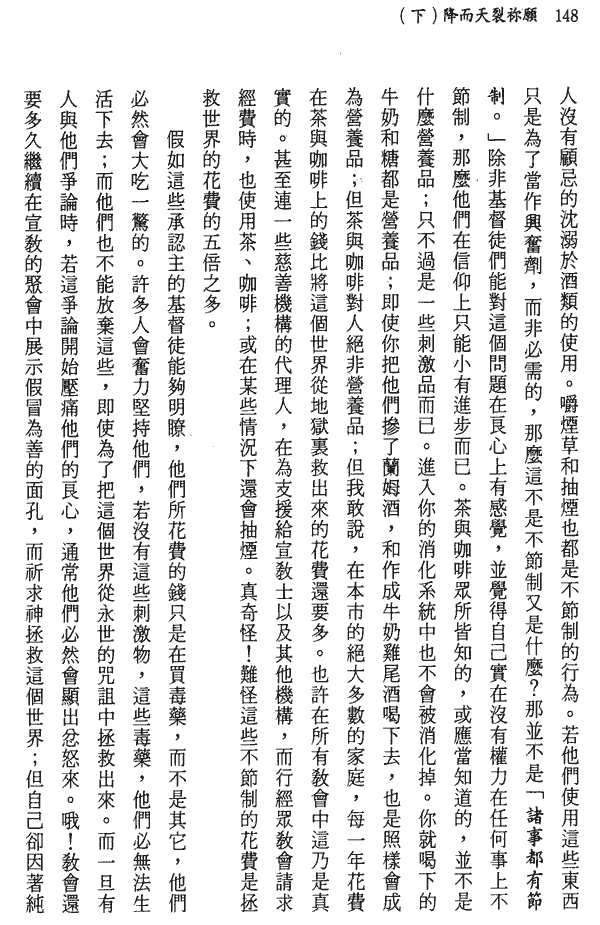 148　願祢裂天而降（下）
人沒有顧忌的沈溺於酒類的使用。嚼煙草和抽煙也都是不節制的行為。若他們使用這些東西
只是為了當作興奮劑，而非必需的，那麼這不是不節制又是什麼？那並不是「諸事都有節
制。」除非基督徒們能對這個問題在良心上有感覺，並覺得自己實在沒有權力在任何事上不
節制，那麼他們在信仰上只能小有進步而已。茶與咖啡眾所皆知的，或應當知道的，並不是
什麼營養品；只不過是一些刺激品而已。進入你的消化系統中也不會被消化掉。你就喝下的
牛奶和糖都是營養品；即使你把他們摻了蘭姆酒，和作成牛奶雞尾酒喝下去，也是照樣會成
為營養品；但茶與咖啡對人絕非營養品；但我敢說，在本市的絕大多數的家庭，每一年花費
在茶與咖啡上的錢比將這個世界從地獄裏救出來的花費還要多。也許在所有教會中這乃是真
實的。甚至連一些慈善機構的代理人，在為支援給宣教士以及其他機構，而行經眾教會請求
經費時，也使用茶、咖啡；或在某些情況下還會抽煙。真奇怪！難怪這些不節制的花費是拯
救世界的花費的五倍之多。
假如這些承認主的基督徒能夠明瞭，他們所花費的錢只是在買毒藥，而不是其它，他們
必然會大吃一驚的。許多人會奮力堅持他們，若沒有這些刺激物，這些毒藥，他們必無法生
活下去；而他們也不能放棄這些，即使為了把這個世界從永世的咒詛中拯救出來。而一旦有
人與他們爭論時，若這爭論開始壓痛他們的良心，通常他們必然會顯出忿怒來。哦！教會還
要多久繼續在宣教的聚會中展示假冒為善的面孔，而祈求神拯救這個世界；但自己卻因著純